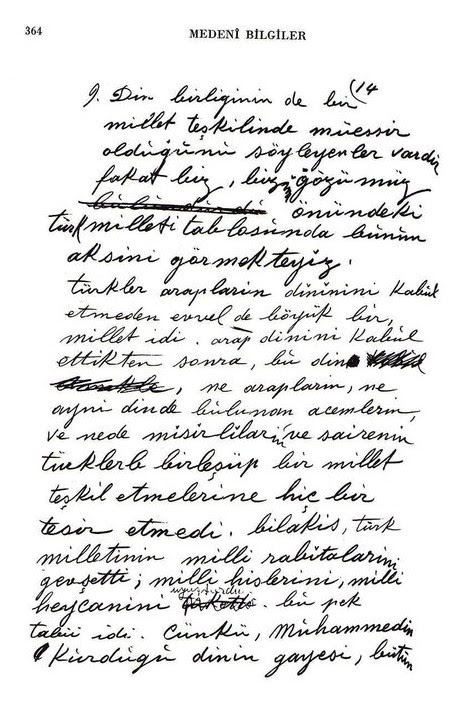 364
MEDENÎ BİLGİLER
9. Din birliginin de bir (14
millet teşkilinde müessir
olduğunu söyleyenler vardır
fakat biz, bizim gözümüz
önündeki
türk milleti tablosunda bunun
aksini görmekteyiz.
türkler arapların dinînini kabul
etmeden evvel de böyük bir,
millet idi. arap dinini kabul
ettikten sonra, bu din
, ne arapların, ne
ayni dinde bulunan acemlerin,
ve nede mısırlıların ve sairenin
türklerle birleşüp bir millet
teşkil etmelerine hiç bir
tesir etmedi. bilâkis, türk
milletinin milli rabıtalarını
gevşetti; milli hislerini, milli
heycanını uyuşturdu. bu pek
tabii idi. Çünkü, Muhammedin
kurduğu dinin gayesi, bütün